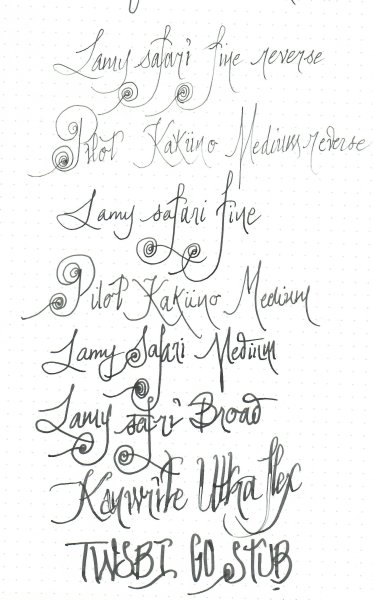 Lamy safari fine reverse
Pilot Kakuno Medium reverse
Lamy safari fine
Pilot Kakuno Medium
Lamy Safari Medium
Lamy safari Broad
Kanwrite Ultra flex
TWSBI GO STUB